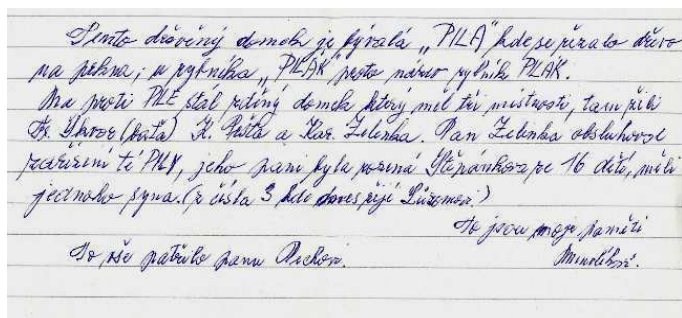 Tento dřevěný domek je bývalá „PILA" kde se řezalo dřevo
na prkna; u rybníka „PILAK" proto název rybník PILAK.
Na proti PILE stál zděný domek který měl tři místnosti, tam žili
Fr. (bába) K. Pešta a Kar. Zelinka. Pan Zelinka obsluhoval
zařízení té PILY, jeho paní byla rozená Štěpánkova ze 16 dětí, měli
jednoho syna. (z čísla 3 kde dnes žijí )
To jsou moje paměti
To vše patřilo panu